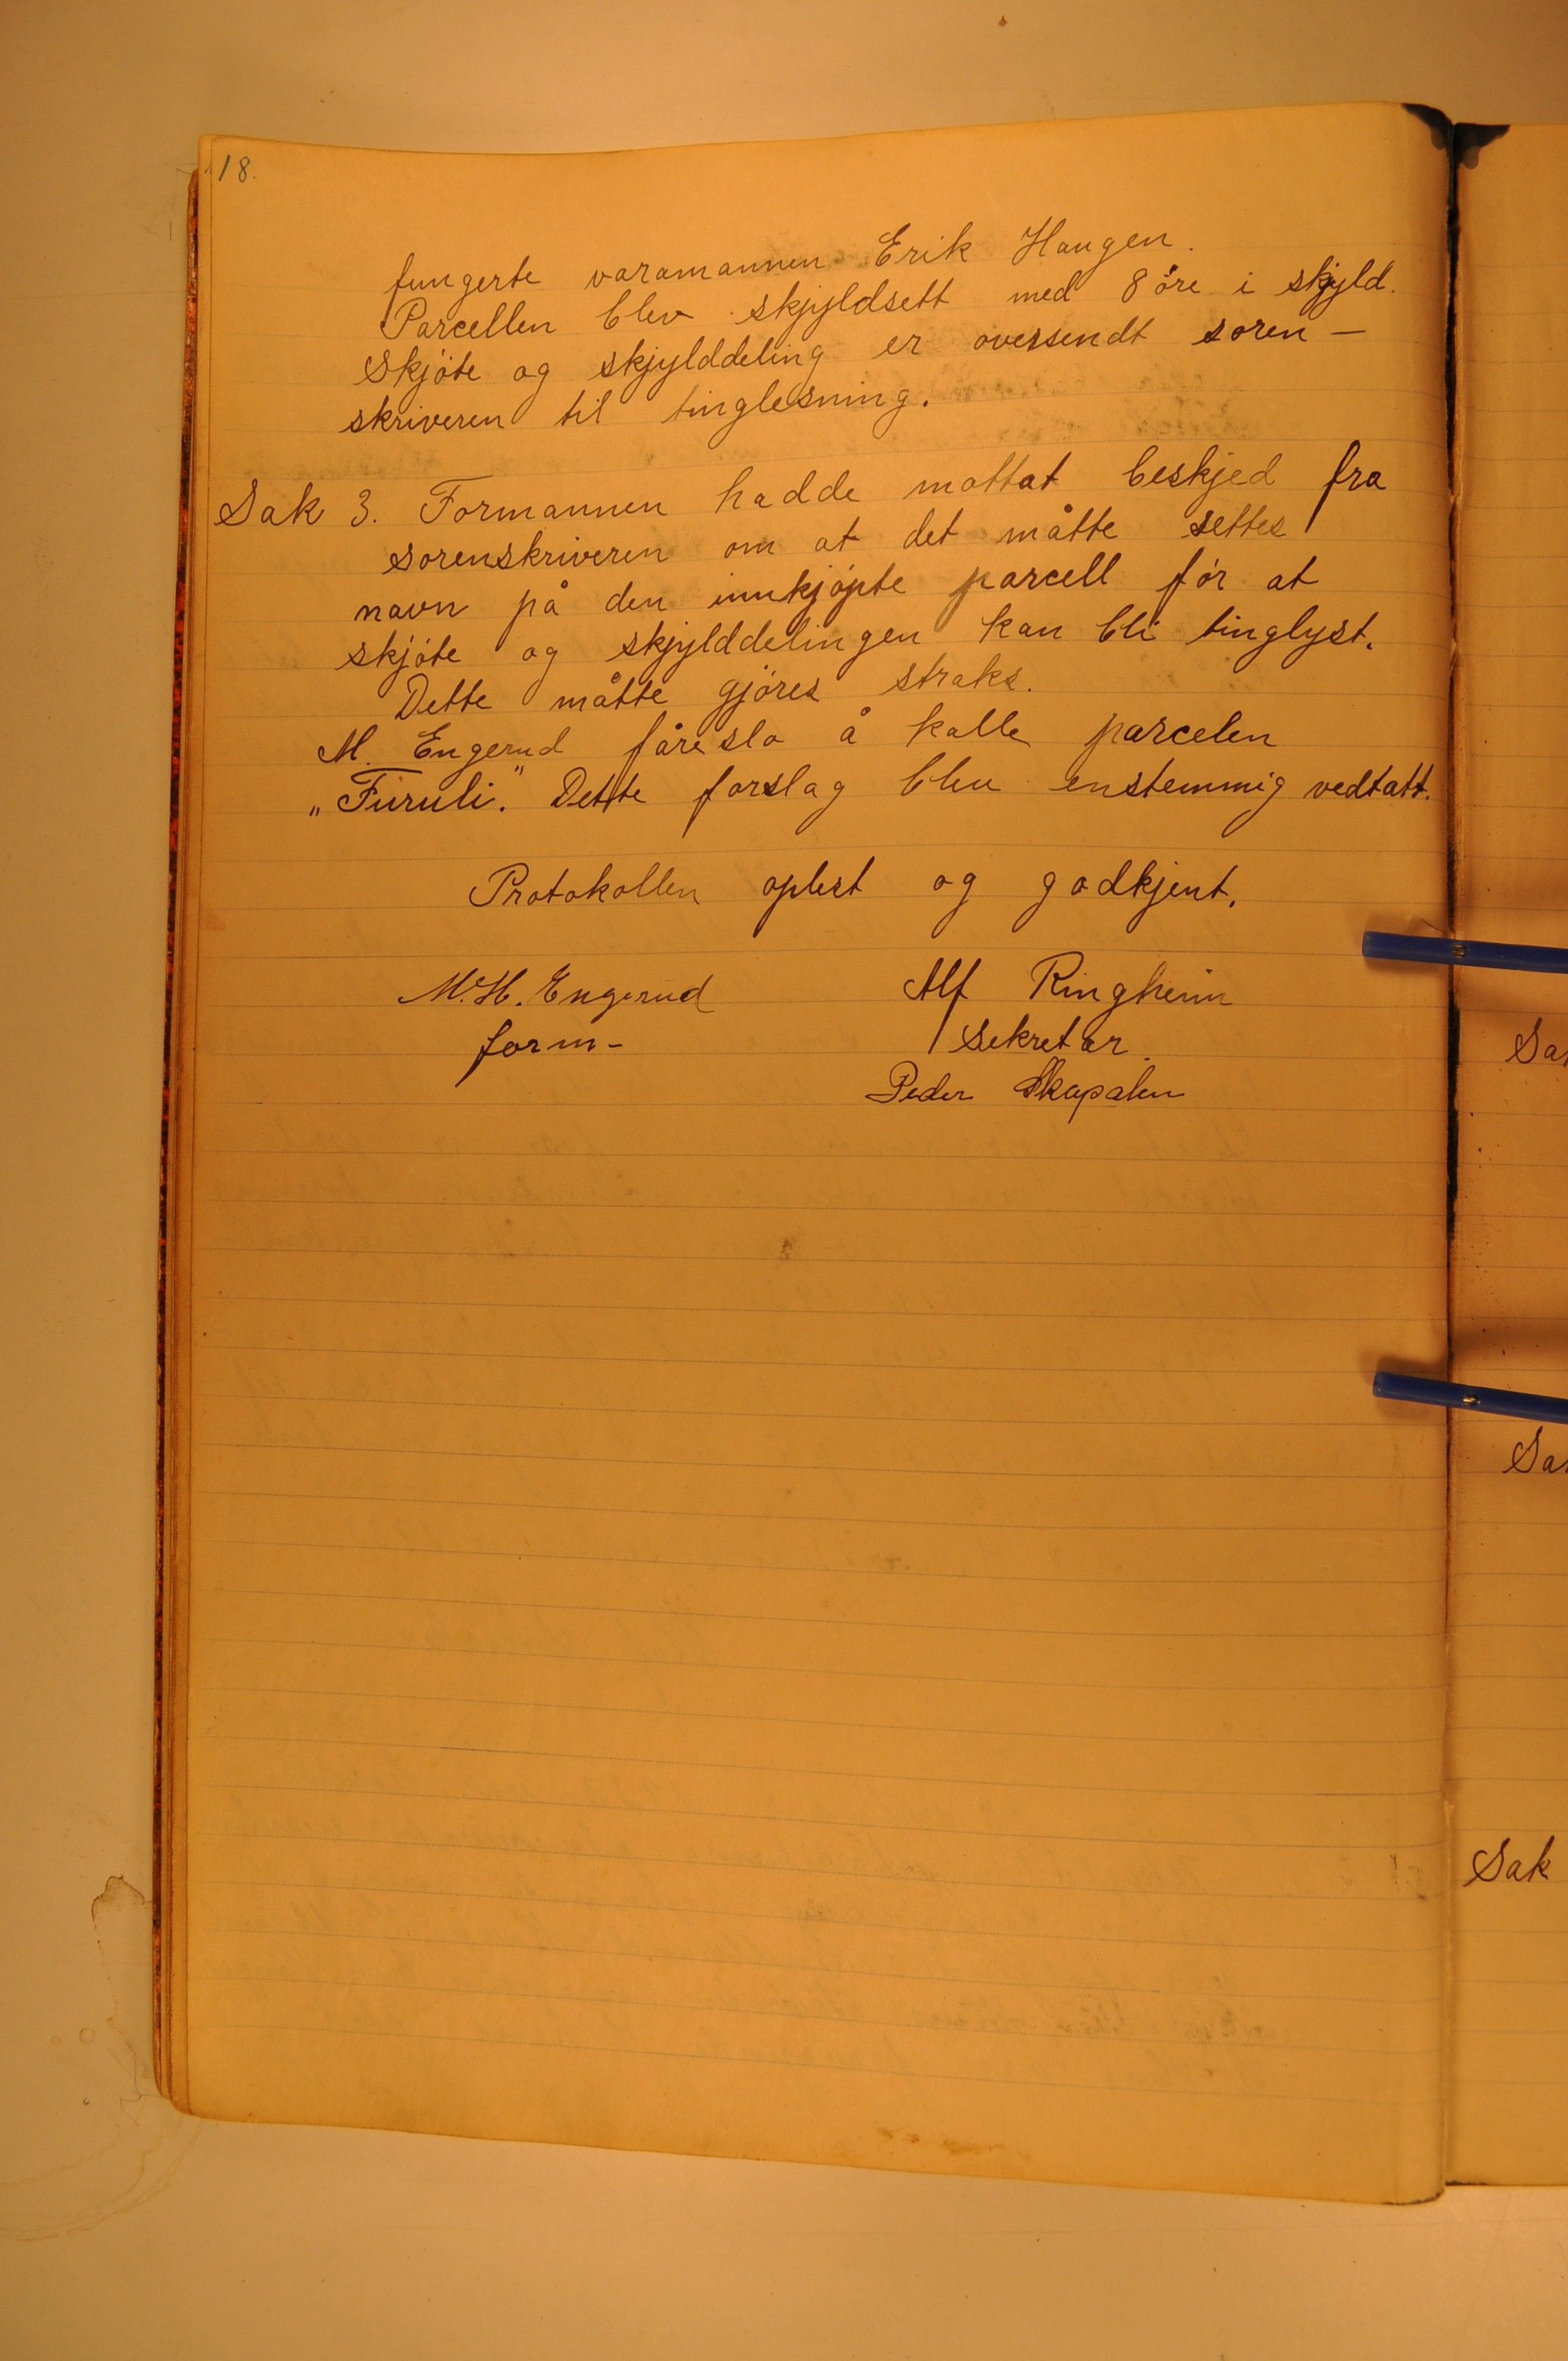 18.
fungerte varamannen Erik Haugen.
Parcellen blev skjyldsett med 8 öre i skjyld.
Skjöte og skjylddeling er oversendt soren-
skriveren til tinglesning.
Sak 3. Formannen hadde mottat beskjed fra
sorenskriveren om at det måtte settes
navn på den innkjöpte parcell för at
skjöte og skjylddelingen kan bli tinglyst.
Dette måtte gjöres straks.
M. Engerud føreslo å kalle parcelen
„Furuli." Dette forslag blev enstemmig vedtatt.
Protokollen oplest og godkjent.
M. H. Engerud
form-
Alf Ringheim
Sekretær.
Peder Skapalen
Sak